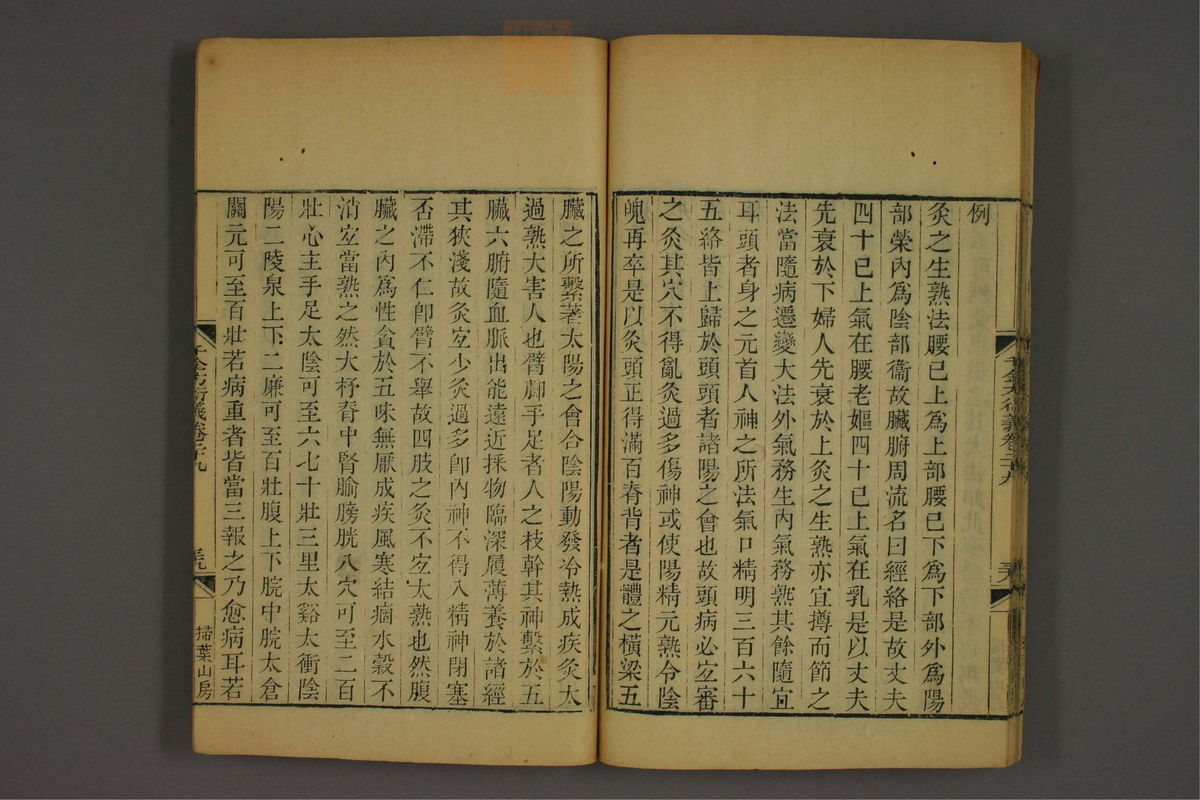 例
灸之生熟法腰已上爲上部腰已下爲下部外爲陽
部榮內爲陰部衞故臟腑周流名曰經絡是故丈夫
四十已上氣在腰老嫗四十已上氣在乳是以丈夫
先衰於下婦人先衰於上灸之生熟亦宜撙而節之
法當隨病遷變大法外氣務生內氣務熟其餘隨宜
耳頭者身之元首人神之所法氣口精明三百六十
五絡皆上歸於頭頭者諸陽之會也故頭病必宐審
之灸其穴不得亂灸過多傷神或使陽精元熟令陰
魄再卒是以灸頭正得滿百脊背者是體之橫梁五
臟之所繫著太陽之會合陰陽動發冷熱成疾灸太
過熟大害人也臂腳手足者人之枝幹其神繫於五
臟六腑隨血脈出能遠近採物臨深履薄養於諸經
其狹淺故灸宐少灸過多卽內神不得入精神閉塞
否滯不仁卽臂不舉故四肢之灸不宐太熟也然腹
臟之內爲性貪於五味無厭成疾風寒結痼水穀不
消宐當熟之然大杼脊中腎腧膀胱八穴可至二百
壯心主手足太陰可至六七十壯三里太谿太衝陰
陽二陵泉上下二廉可至百壯腹上下脘中脘太倉
關元可至百壯若病重者皆當三報之乃愈病耳若
千金方衍義卷二十九
掃葉山房